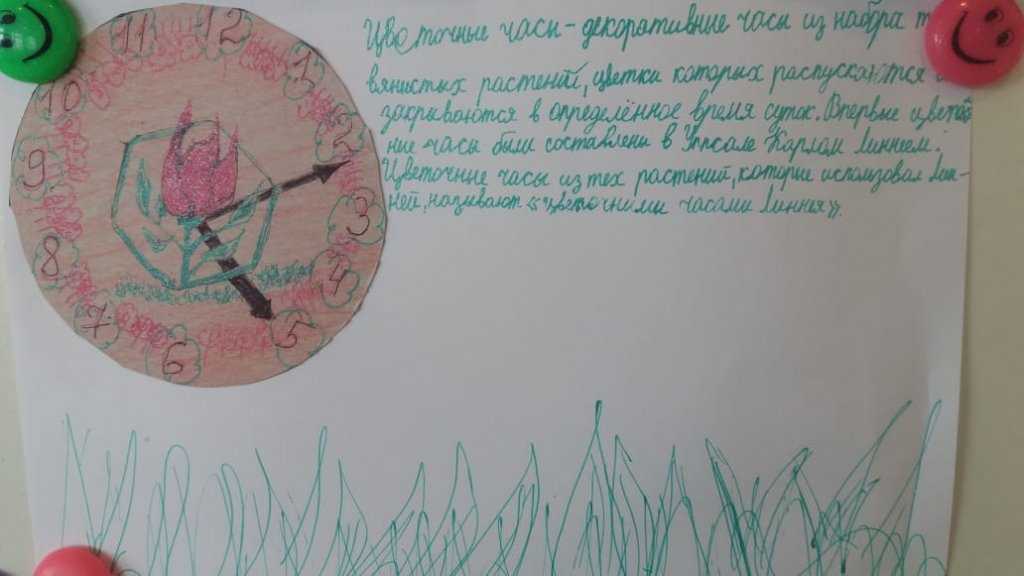 12
11
1
10
2
9
3
8
4
7
5
6
Цветочные часы - декоративные часы из набора т
вянистых растений, цветки которых распускаются и
закрываются в определённое время суток. Впервые цветоч
ные часы были составлены в Уппсале Карлом Линнеем.
Цветочные часы из тех растений, которые использовал Лин-
ней, называют «цветочными часами Линнея».